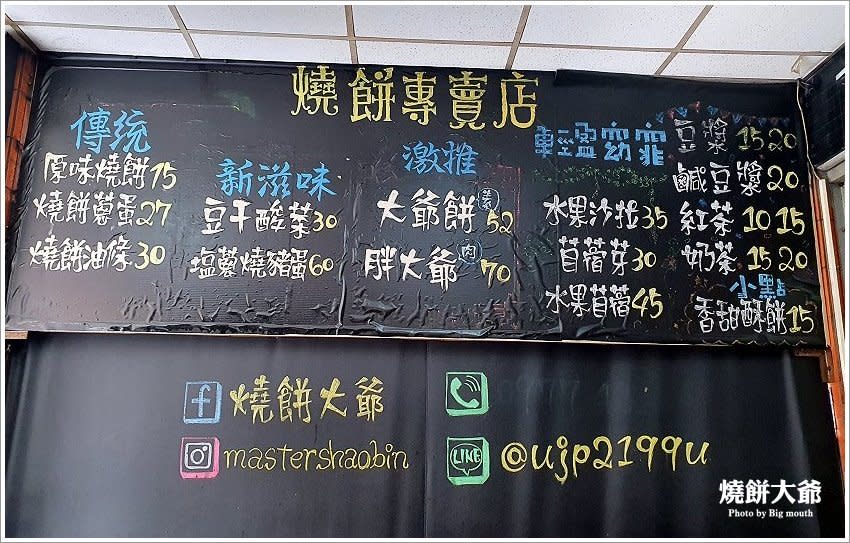 燒餅專賣店
傳統
原味燒餅15
燒餅蔥蛋27
燒餅油條30
新滋味
豆干酸菜30
塩蔥燒豬蛋60
激推
大爺餅 52
胖大爺 肉 70
輕盈窈窕
水果沙拉35
苜蓿芽30
水果苜蓿45
豆漿 15 20
鹹豆漿20
紅茶 10 15
奶茶 15 20
小點
香甜酥餅15
燒餅大爺
mastershaobin
LINE
@ujp2199u
燒餅大爺
Photo by Big mouth